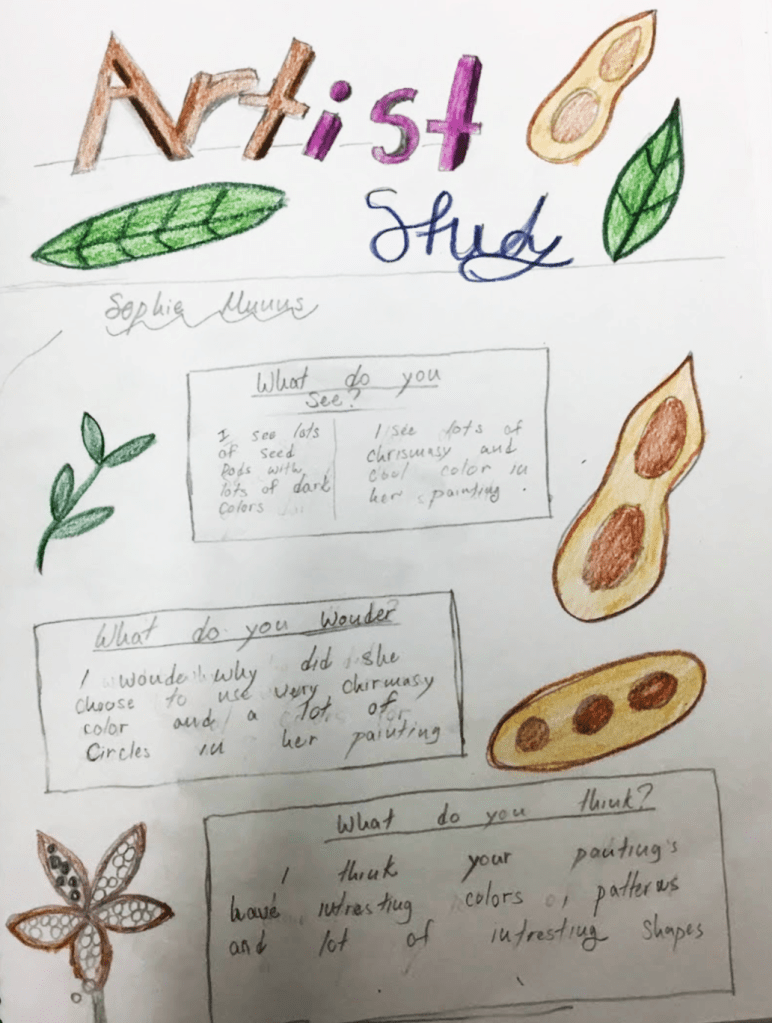 Artist
Study
Sophie Munns
What do you
See?
I see lots
of seed
Pods with
lots of dark
colors
I see lots of
chrismasy and
cool color in
her painting.
What do you Wonder?
I wonder why did she
choose to use very chirmasy
color and a lot of
Circles in her painting
What do you think?
I think your painting's
have intresting colors, patterns
and lot of intresting shapes